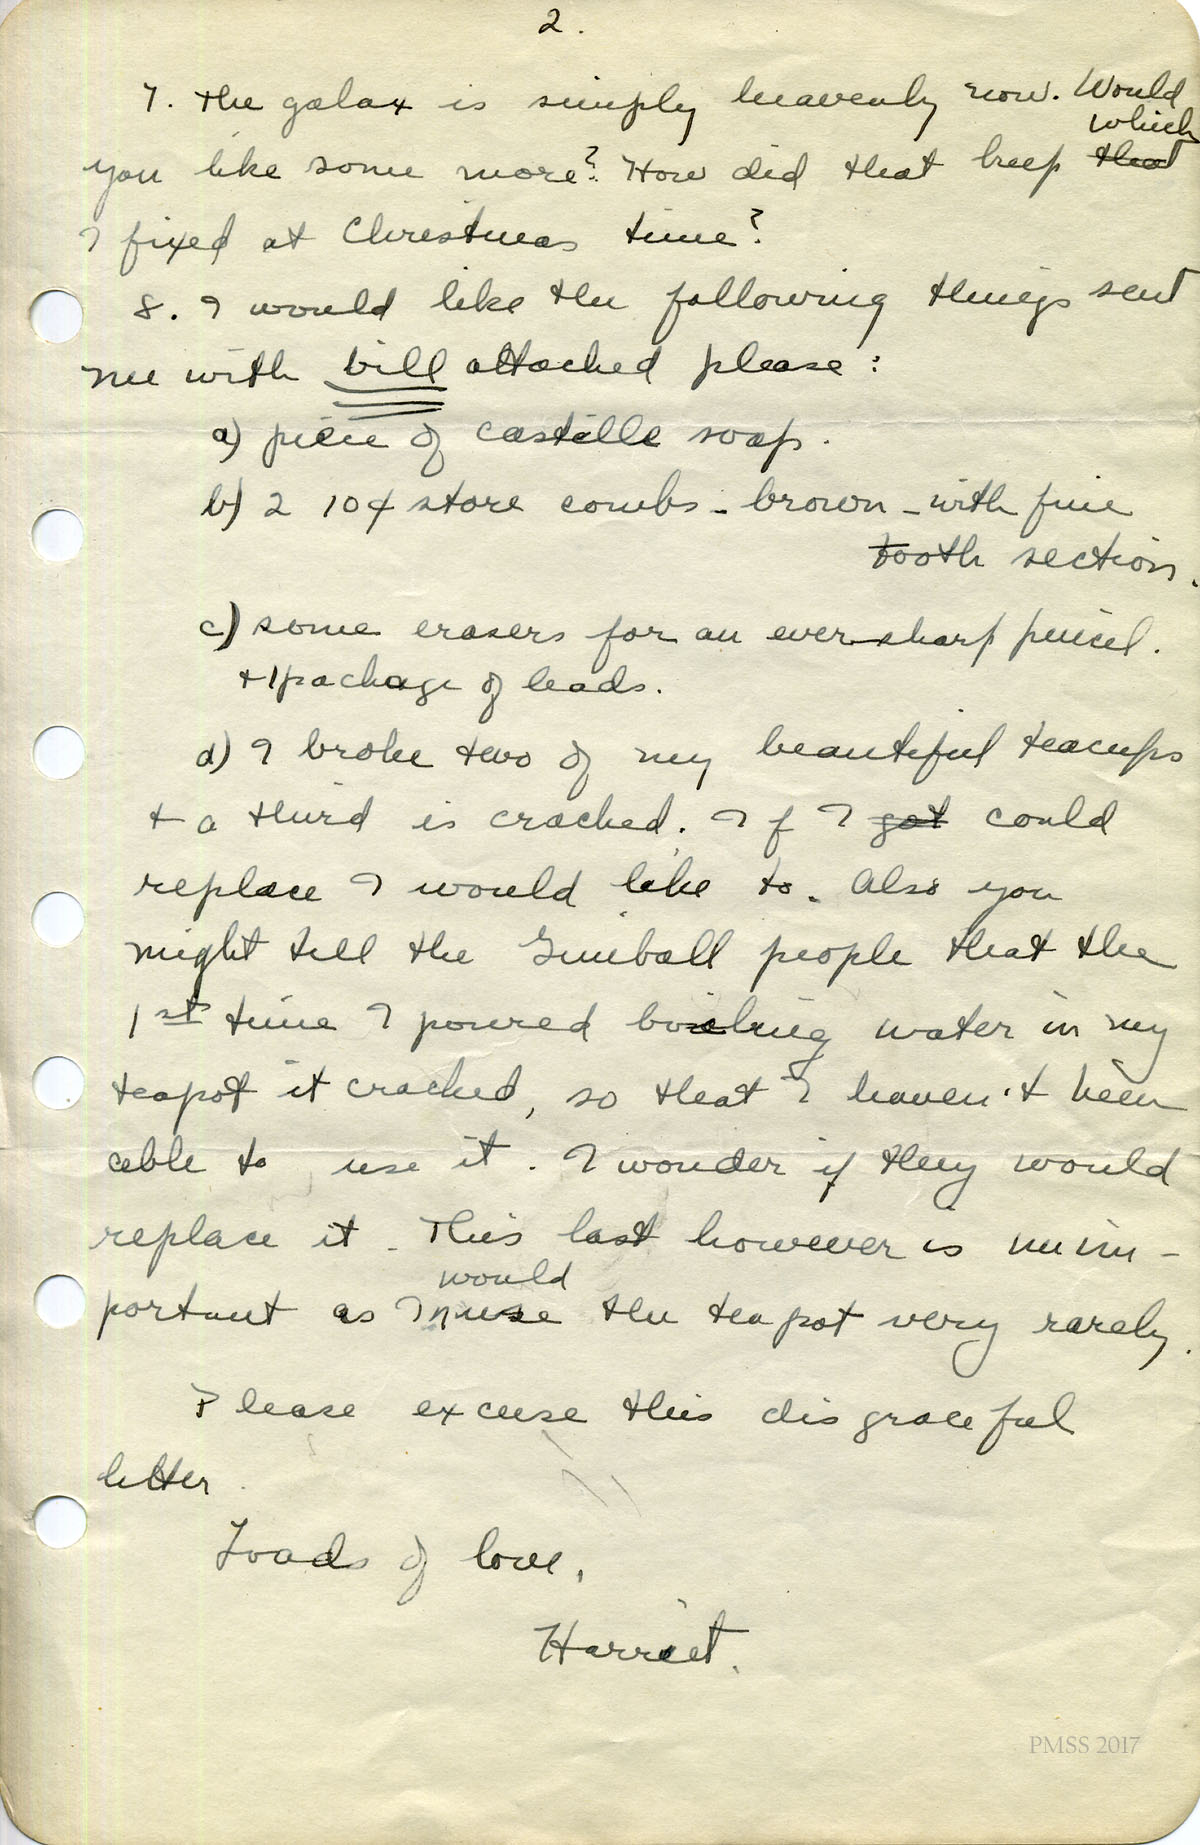 2.
7. The galax is simply heavenly now. Would
which
you like some more? How did that keep ~~that~~
I fixed at Christmas time?
8. I would like the following things sent
me with bill attached please:
a) piece of castille soap.
b) 2 10¢ store combs - brown - with fine
tooth section.
c) some erasers for an eversharp pencil.
+ 1 package of leads.
d) I broke two of my beautiful teacups
+ a third is cracked. If I ~~got~~ could
replace I would like to. Also you
might tell the Gimball people that the
1st time I poured boiling water in my
teapot it cracked, so that I haven't been
able to use it. I wonder if they would
replace it. This last however is unim-
would
portant as I use the teapot very rarely.
Please excuse this disgraceful
letter.
Loads of love,
Harriet.
PMSS 2017